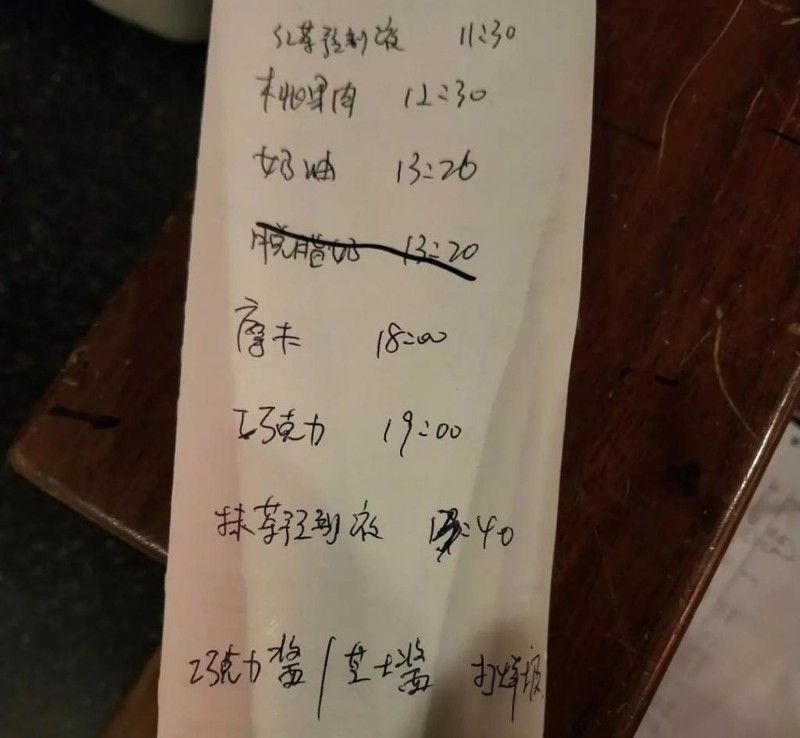 红茶预制液 11:30
桃果肉 12:30
奶油 13:20
脱脂奶 13:20
摩卡 18:00
巧克力 19:00
抹茶预制液 :40
巧克力酱/芝士酱 打烊